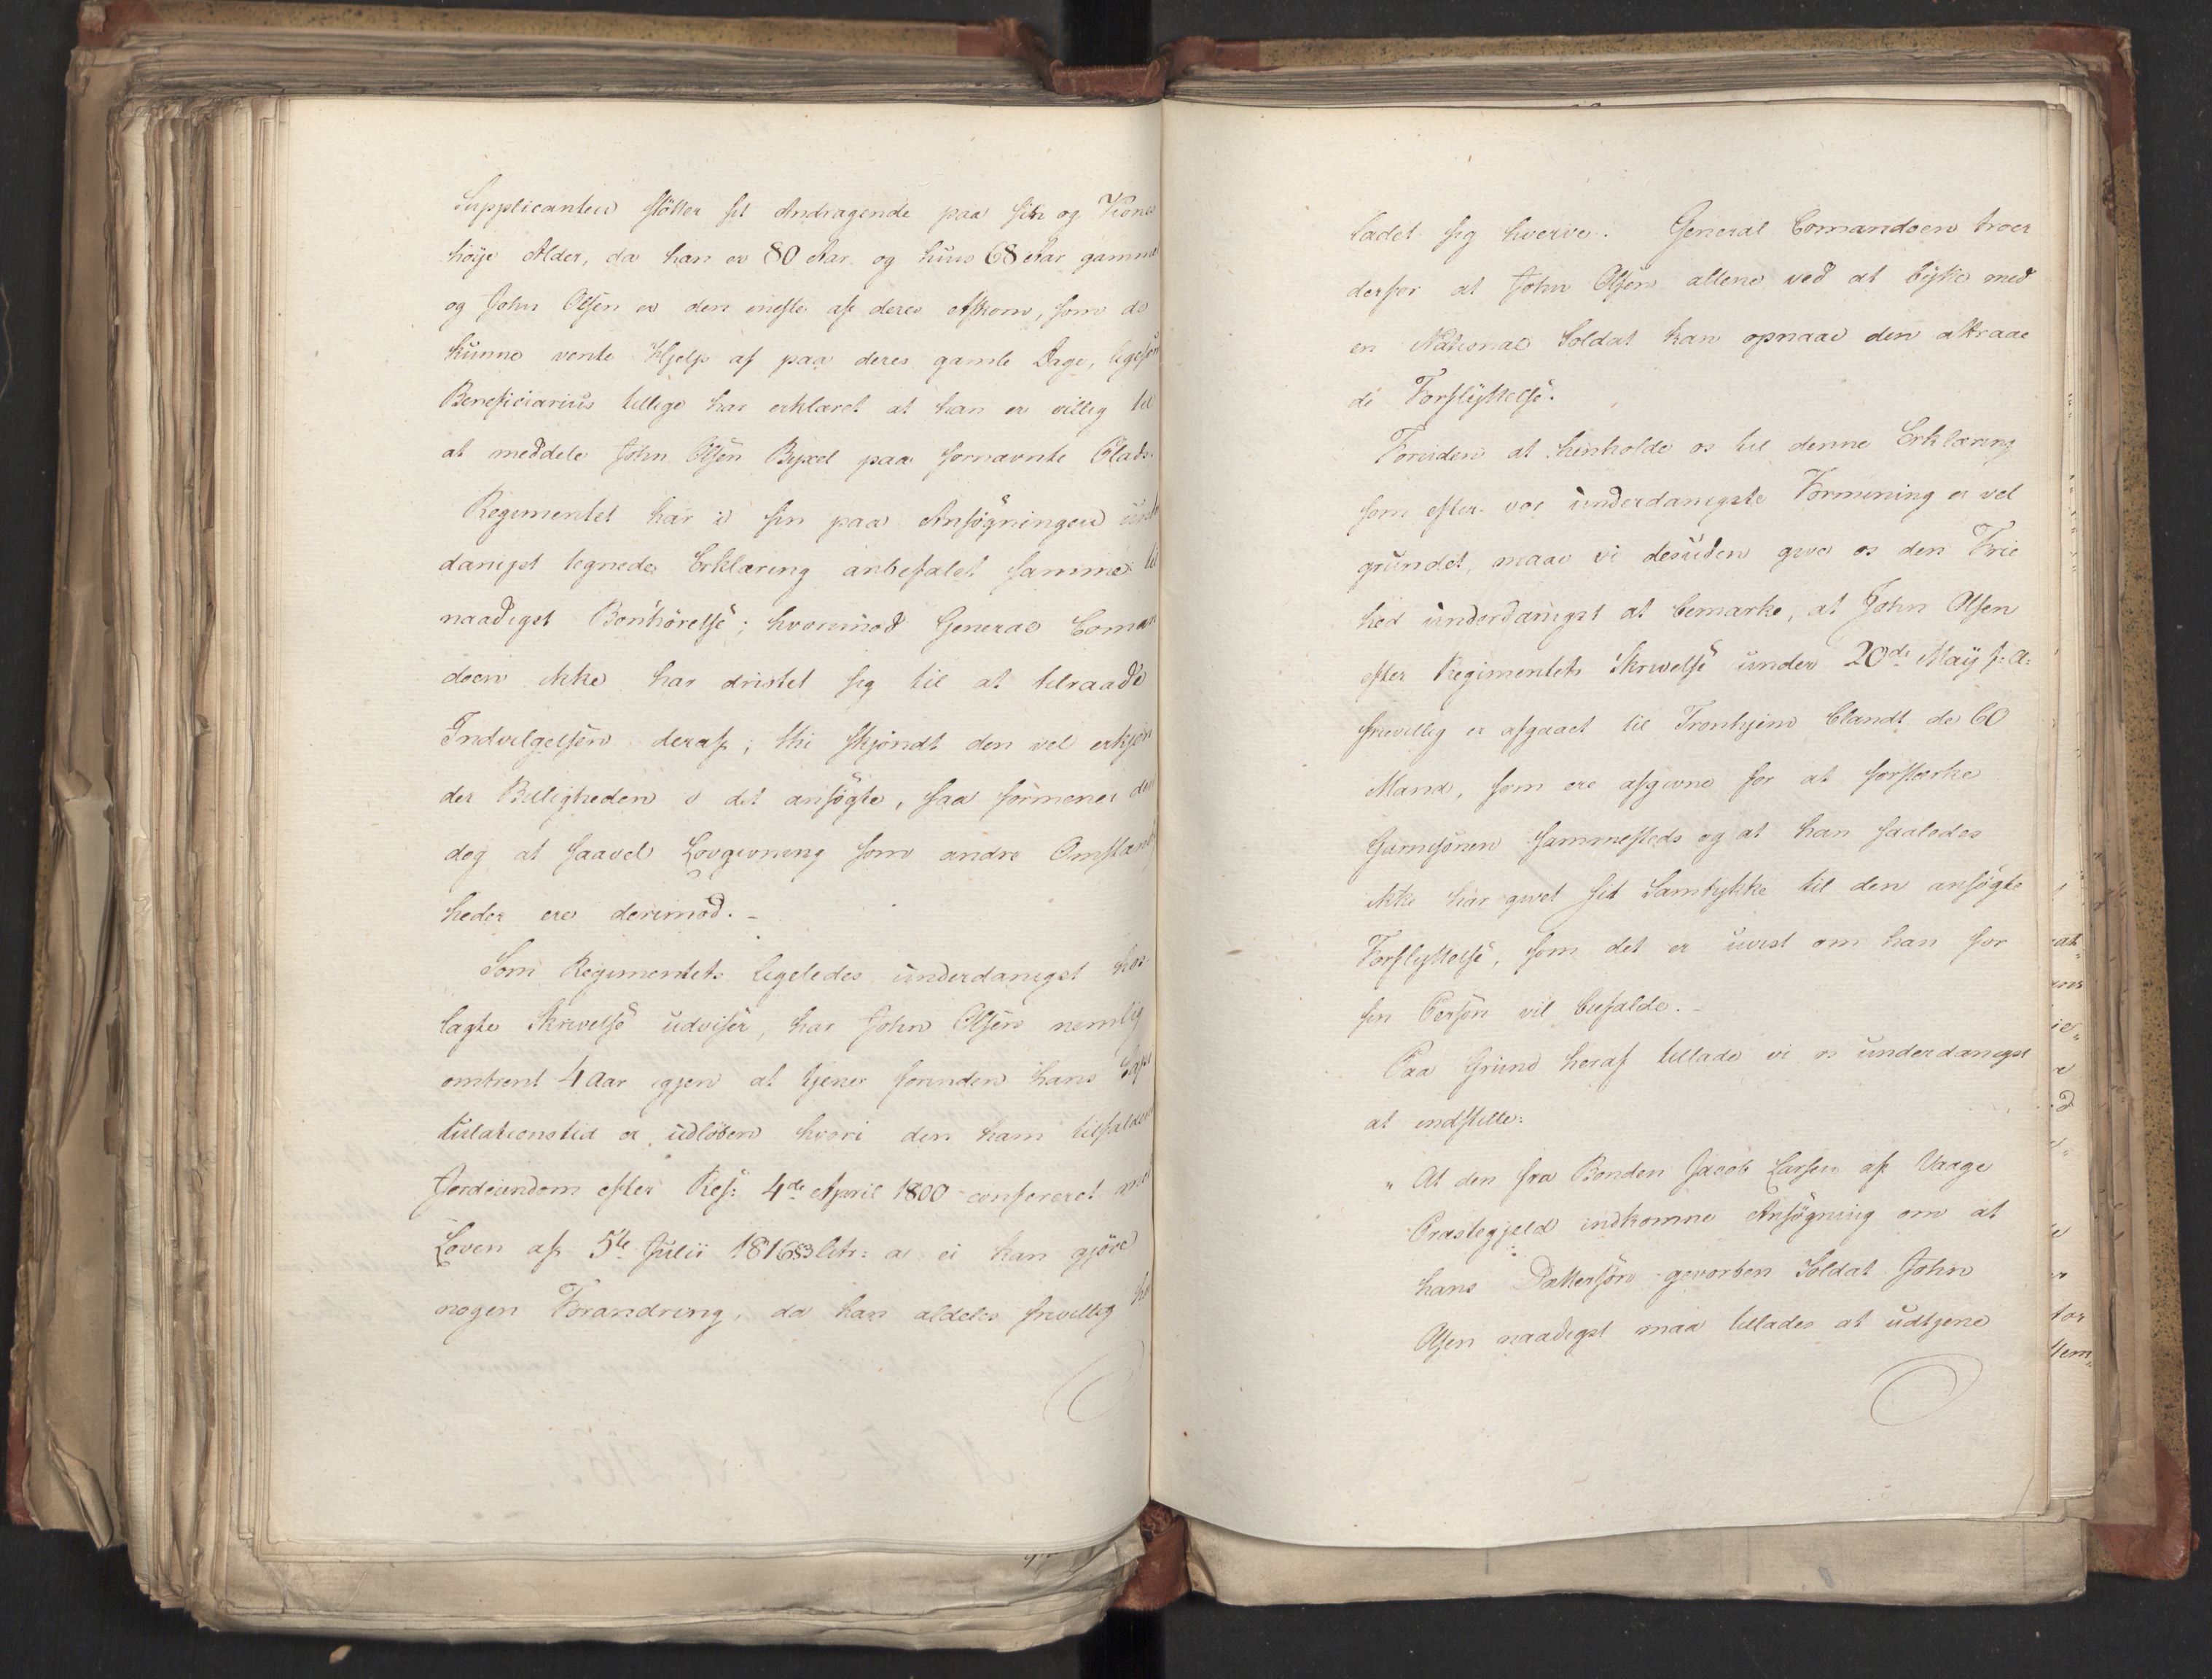 Supplicanten stötter sit Andragende paa sin og Kones
höye Alder, da han er 80 Aar og hun 68 Aar gamme
og John Olsen er den eneste af deres Afkom, som de
kunne vente Hjelp af paa deres gamle Dage, ligesom
Beneficiarius tillige har erklæret at han er villig til
at meddele John Olsen Byxel paa fornævnte Plads.
Regimentet har i sin paa Ansögningen under
danigst tegnede Erklæring anbefalet samme til
naadigst Bönhörelse; hvorimod General Coman
doen ikke har dristet sig til at tilraade
Indvilgelsen deraf; thi skjöndt den vel erkjen
der Billigheden i det ansögte, saa formener den
dog at saavel Lovgivning som andre Omstænd
heder ere derimod. –
Som Regimentets ligeledes underdanigst hos
lagte Skrivelse udviser, har John Olsen nemlig
omtrent 4 Aar igjen at tjene forinden hans Capi
tulationstid er udlöben hvori den ham tilfaldne
Jordeiendom efter Res: 4de April 1800 confereret med
Loven af 5te Julii 1816 § 83 litr: a ei kan gjöre
nogen Forandring, da han aldeles frivillig har
ladet sig hverve. General Comandoen troer
derfor at John Olsen allene ved at bytte med
en National Soldat kan opnaae den attraae
de Forflyttelse.
Foruden at henholde os til denne Erklæring
som efter vor underdanigste Formening er vel
grundet, maae vi desuden give os den Frie
hed underdanigst at bemærke, at John Olsen
efter Regimentets Skrivelse under 20de May f: A:
frivillig er afgaaet til Tronhjem blandt de 60
Mand, som ere afgivne for at forstærke
Garnisonen sammesteds og at han saaledes
ikke har givet sit Samtykke til den ansögte
Forflyttelse, som det er uvist om han for
sin Person vil bifalde. –
Paa Grund heraf tillade vi os underdanigst
at indstille:
" At den fra Bonden Jacob Larsen af Vaage
Præstegjeld indkomne Ansögning om at
hans Dattersön gevorben Soldat John
Olsen naadigst maa tillades at udtjene